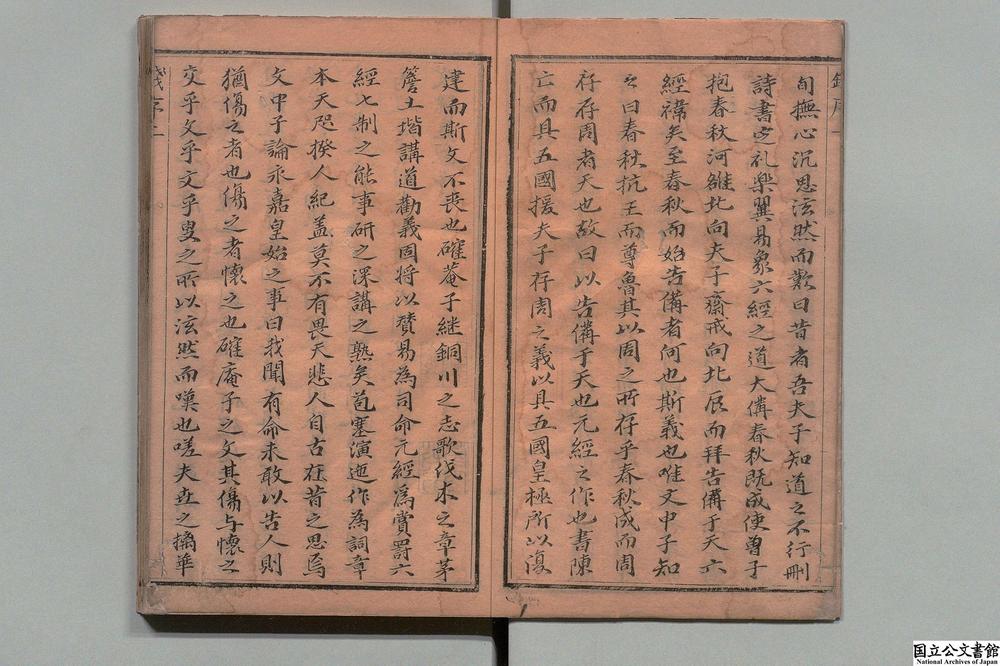 旬撫心沉思泫然而歎曰昔者吾夫子知道之不行刪
詩書定礼樂翼易象六經之道大備春秋既成使曽子
抱春秋河雒北向夫子齋戒向北辰而拜告備于天六
經褘矣至春秋而始告備者何也斯義也唯文中子知
之曰春秋抗王而尊魯其以周之所存乎春秋成而周
存存周者天也故曰以告備于天也元經之作也書陳
亡而具五國援夫子存周之義以具五國皇極所以復
建而斯文不喪也確菴子继銅川之志歌伐木之章茅
簷土堦講道勸義固将以賛易為司命元經為賞罰六
經七制之能事研之深講之熟矣苞塞演迤作為詞章
本天咫揆人紀盖莫不有畏天悲人自古在昔之思焉
文中子論永嘉皇始之事曰我聞有命未敢以告人則
猶傷之者也傷之者懷之也確庵子之文其傷与懷之
交乎文乎文乎叟之所以泫然而嘆也嗟夫世之摛華
序二
国立公文書館
National Archives of Japan